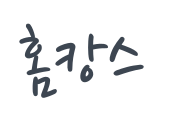 홈캉스